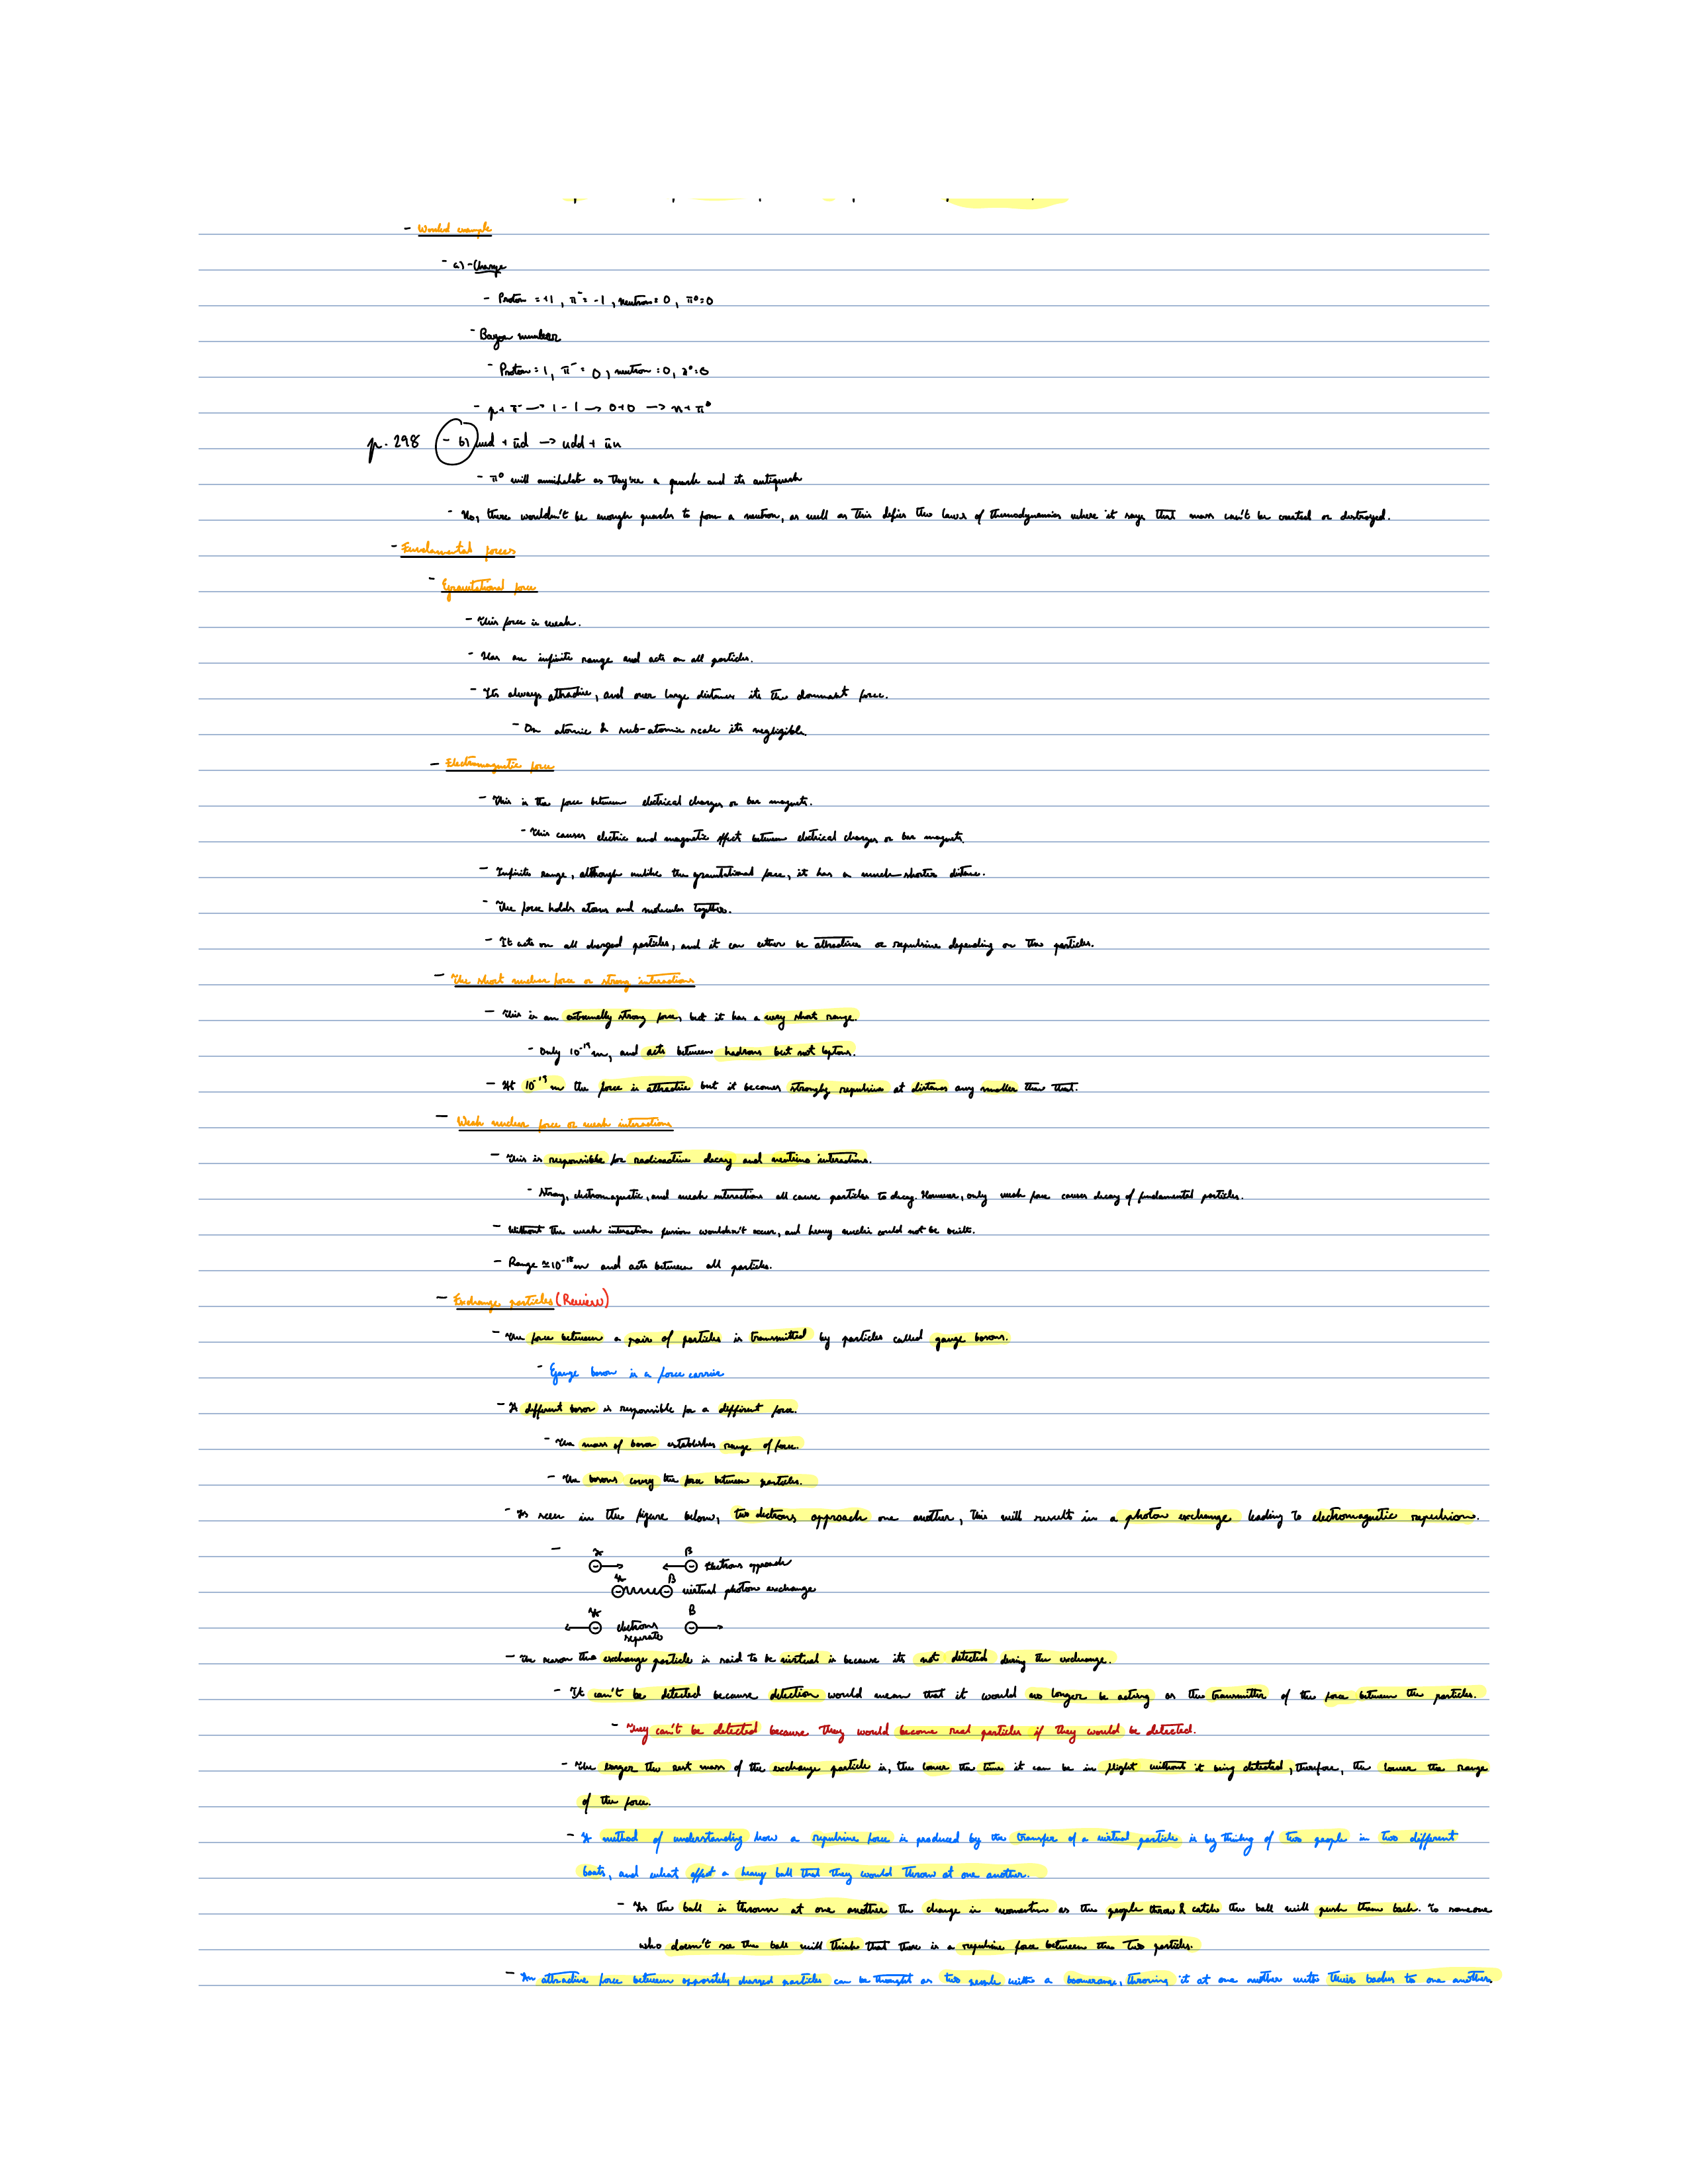 - Worked example
- a) - Charge
- Proton = +1, π⁻ = -1, neutron = 0, π⁰ = 0
- Baryon number
- Proton = 1, π⁻ = 0, neutron = 0, π⁰ = 0
- p + π⁻ → 1 - 1 → 0 + 0 → n + π⁰
p. 298 - b) uud + ūd → udd + ūu
- π⁰ will annihilate as they're a quark and its antiquark
- No, there wouldn't be enough quarks to form a neutron, as well as this defies the laws of thermodynamics where it says that mass can't be created or destroyed.
- Fundamental forces
- Gravitational force
- This force is weak.
- Has an infinite range and acts on all particles.
- Its always attractive, and over large distances its the dominant force.
- On atomic & sub-atomic scale its negligible.
- Electromagnetic force
- This is the force between electrical charges or bar magnets.
- This causes electric and magnetic effect between electrical charges or bar magnets.
- Infinite range, although unlike the gravitational force, it has a much shorter distance.
- The force holds atoms and molecules together.
- It acts on all charged particles, and it can either be attractive or repulsive depending on the particles.
- The short nuclear force or strong interactions
- This is an extremely strong force, but it has a very short range.
- Only 10⁻¹⁵m, and acts between hadrons but not leptons.
- At 10⁻¹⁵m the force is attractive but it becomes strongly repulsive at distances any smaller than that.
- Weak nuclear force or weak interactions
- This is responsible for radioactive decay and neutrino interactions.
- Strong, electromagnetic, and weak interactions all cause particles to decay. However, only weak force causes decay of fundamental particles.
- Without the weak interaction fusion wouldn't occur, and heavy nuclei could not be built.
- Range ≃10⁻¹⁸m and acts between all particles.
- Exchange particles (Review)
- The force between a pair of particles is transmitted by particles called gauge bosons.
- Gauge boson is a force carrier
- A different boson is responsible for a different force.
- The mass of boson establishes range of force.
- The bosons convey the force between particles.
- As seen in the figure below, two electrons approach one another, this will results in a photon exchange leading to electromagnetic repulsion.
- A B
Electrons approach
A B
virtual photon exchange
A B
electrons
separate
- The reason the exchange particle is said to be virtual is because its not detected during the exchange.
- It can't be detected because detection would mean that it would no longer be acting as the transmitter of the force between the particles.
- They can't be detected because they would become real particles if they would be detected.
- The larger the rest mass of the exchange particle is, the lower the time it can be in flight without it being detected, therefore, the lower the range
of the force.
- A method of understanding how a repulsive force is produced by the transfer of a virtual particle is by thinking of two people in two different
boats, and what effect a heavy ball that they would throw at one another.
- As the ball is thrown at one another the change in momentum as the people throw & catch the ball will push them back. To someone
who doesn't see the ball will think that there is a repulsive force between the two particles.
- An attractive force between oppositely charged particles can be thought as two people with a boomerang, throwing it at one another with their backs to one another.